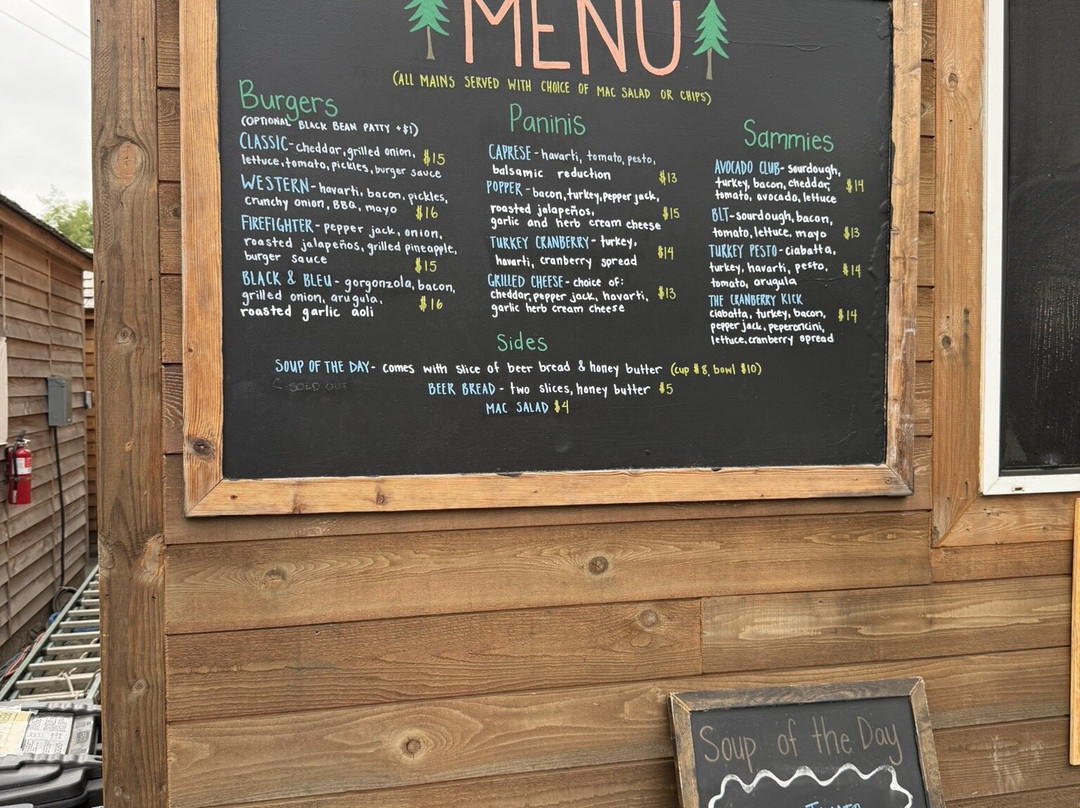 MENU
(ALL MAINS SERVED WITH CHOICE OF MAC SALAD OR CHIPS)
Burgers
(OPTIONAL BLACK BEAN PATTY +$1)
CLASSIC - cheddar, grilled onion, $15
lettuce, tomato, pickles, burger sauce
WESTERN - havarti, bacon, pickles,
crunchy onion, BBQ, mayo $16
FIREFIGHTER - pepper jack, onion,
roasted jalapeños, grilled pineapple,
burger sauce $15
BLACK & BLEU - gorgonzola, bacon,
grilled onion, arugula, $16
roasted garlic aoli
Paninis
CAPRESE - havarti, tomato, pesto,
balsamic reduction $13
POPPER - bacon, turkey, pepper jack,
roasted jalapeños, $15
garlic and herb cream cheese
TURKEY CRANBERRY - turkey, $14
havarti, cranberry spread
GRILLED CHEESE - choice of:
cheddar, pepper jack, havarti, $13
garlic herb cream cheese
Sammies
AVOCADO CLUB - sourdough,
turkey, bacon, cheddar, $14
tomato, avocado, lettuce
BLT - sourdough, bacon,
tomato, lettuce, mayo $13
TURKEY PESTO - ciabatta,
turkey, havarti, pesto, $14
tomato, arugula
THE CRANBERRY KICK
ciabatta, turkey, bacon, $14
pepper jack, peperoncini,
lettuce, cranberry spread
Sides
SOUP OF THE DAY - comes with slice of beer bread & honey butter (cup $8, bowl $10)
SOLD OUT
BEER BREAD - two slices, honey butter $5
MAC SALAD $4
Soup of the Day
TOMATO